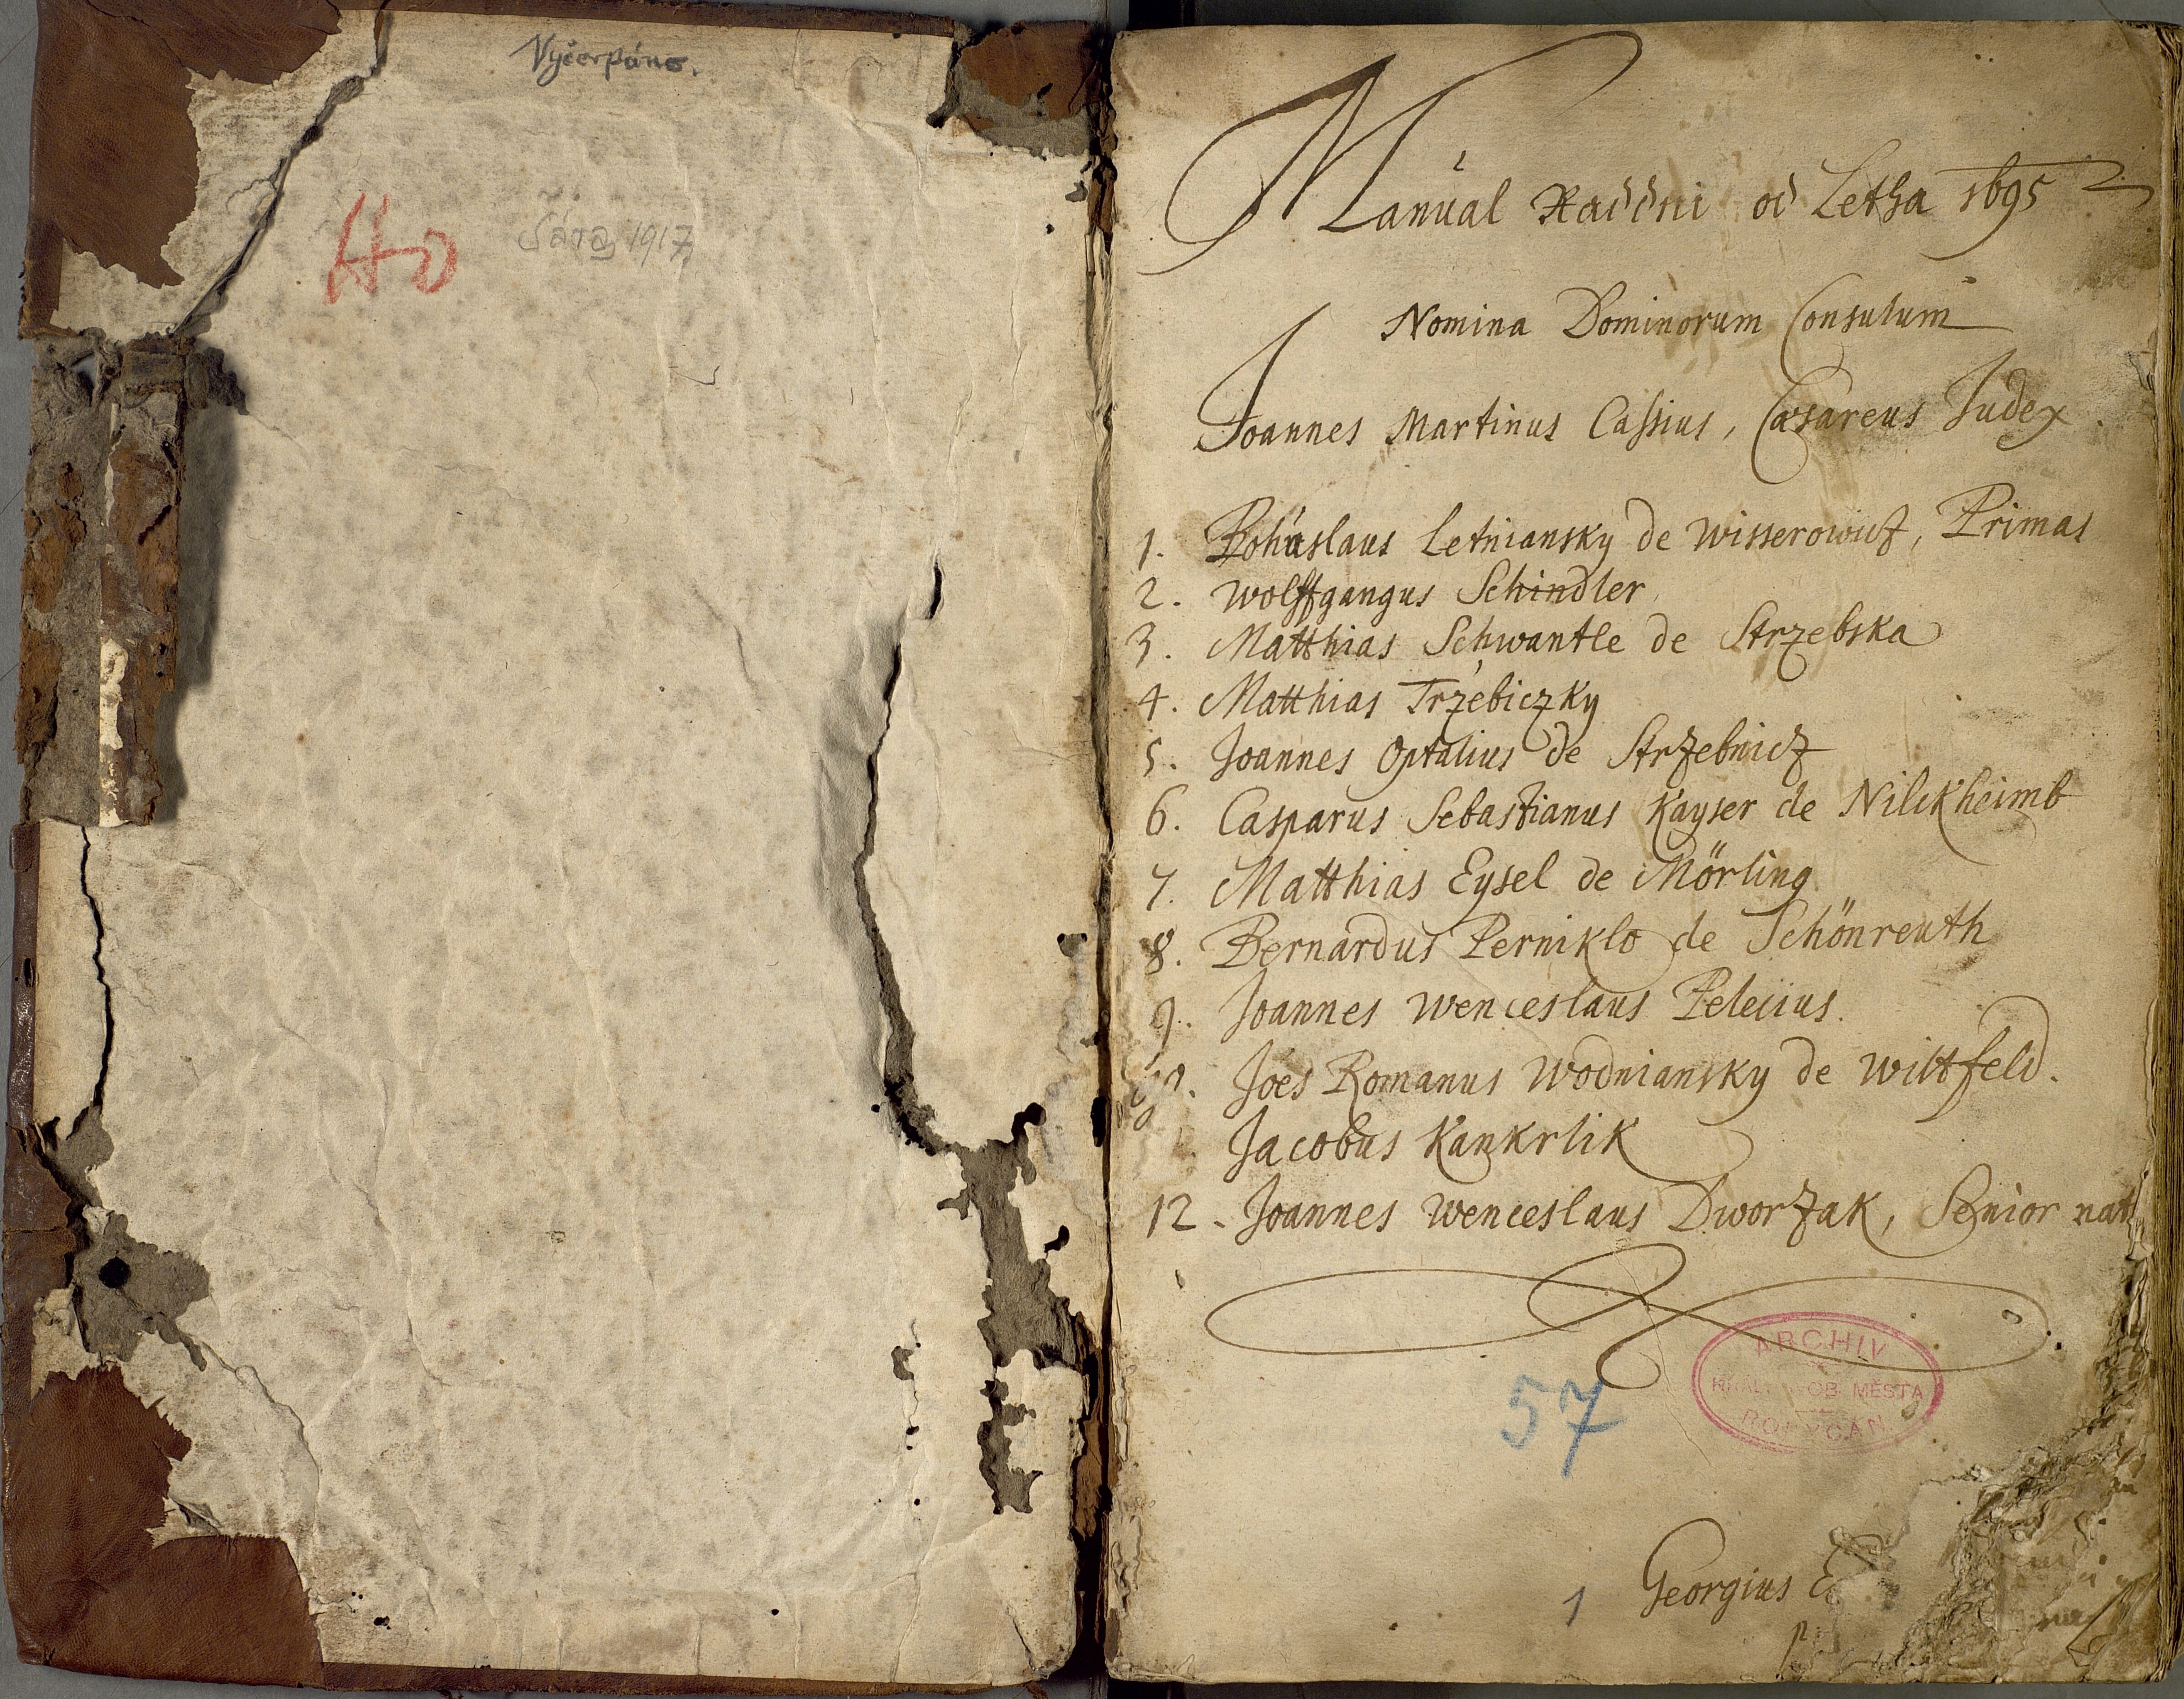 Vyčerpáno.
Ho
1917
Manual Raddni od Letha 1695
Nomina Dominorum Consulum
Joannes Martinus Cassius, Cæsareus Judex.
1. Bohuslaus Letniansky de Wisserowicz, Primas
2. Wolffgangus Schindler
3. Matthias Schwantle de Strzebska
4. Matthias Trzebiczky
5. Joannes Optalius de Strzebnicz
6. Casparus Sebastianus Kayser de Nilckheimb
7. Matthias Eysel de Mörling
8. Bernardus Perniklo de Schönreuth
9. Joannes Wenceslaus Pelecius.
10. Joes Romanus Wodniansky de Wiltfeld.
Jacobus Kankrlik
12. Joannes Wenceslaus Dworzak, Senior nat
ARCHIV
KRÁL. OB. MĚSTA
ROKYCAN
57
1 Georgius